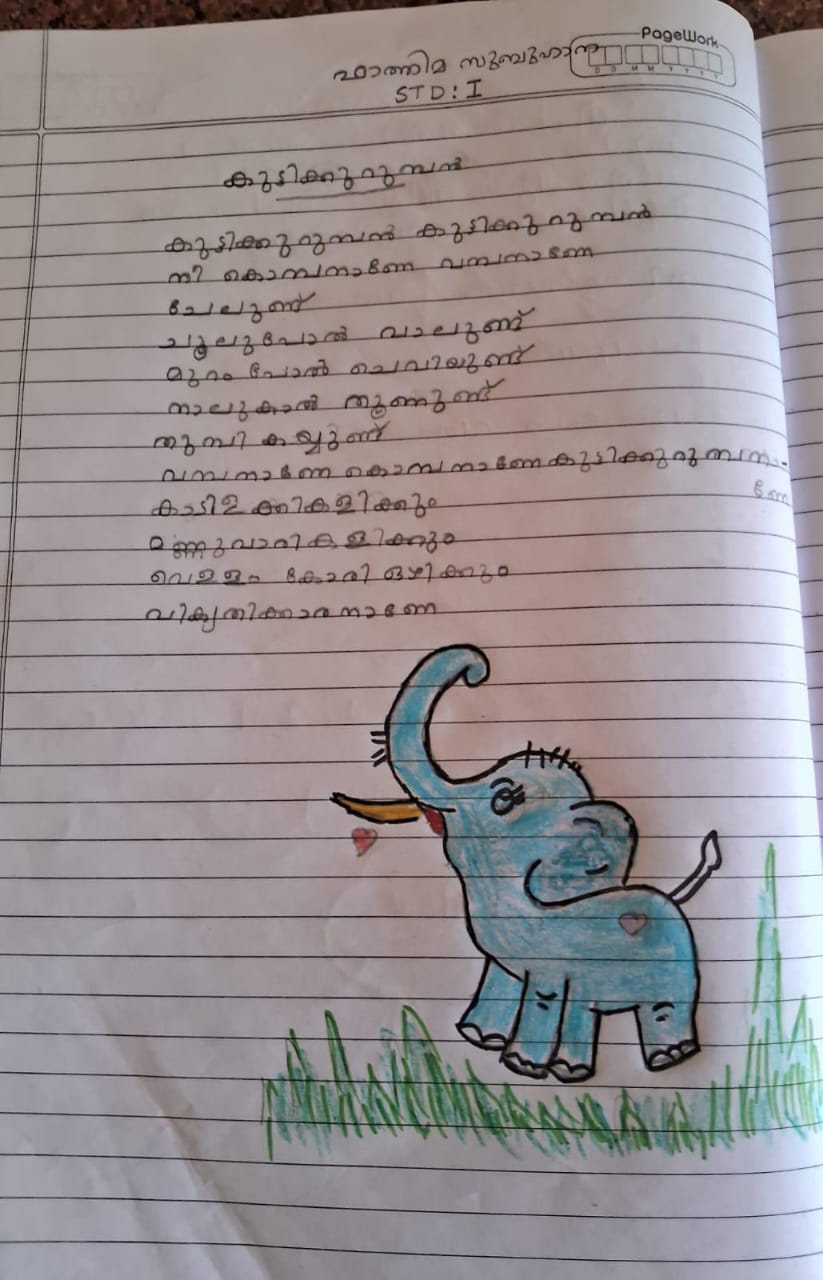 PageWork
D D M M Y Y Y Y
ഫാത്തിമ സുബുഹാന
STD: I
കുട്ടിക്കുറുമ്പൻ
കുട്ടിക്കുറുമ്പൻ കുട്ടിക്കുറുമ്പൻ
നീ കൊമ്പനാണേ വമ്പനാണേ
ചേലുണ്ട്
ചൂലുപോൽ വാലുണ്ട്
മുറം പോൽ ചെവിയുണ്ട്
നാലുകാൽ തൂണുണ്ട്
തുമ്പി കയ്യുണ്ട്
വമ്പനാണേ കൊമ്പനാണേ കുട്ടിക്കുറുമ്പനാ-
ണേ
കാടിളക്കികളിക്കും
മണ്ണുവാരികളിക്കും
വെള്ളം കോരി ഒഴിക്കും
വികൃതിക്കാരനാണേ